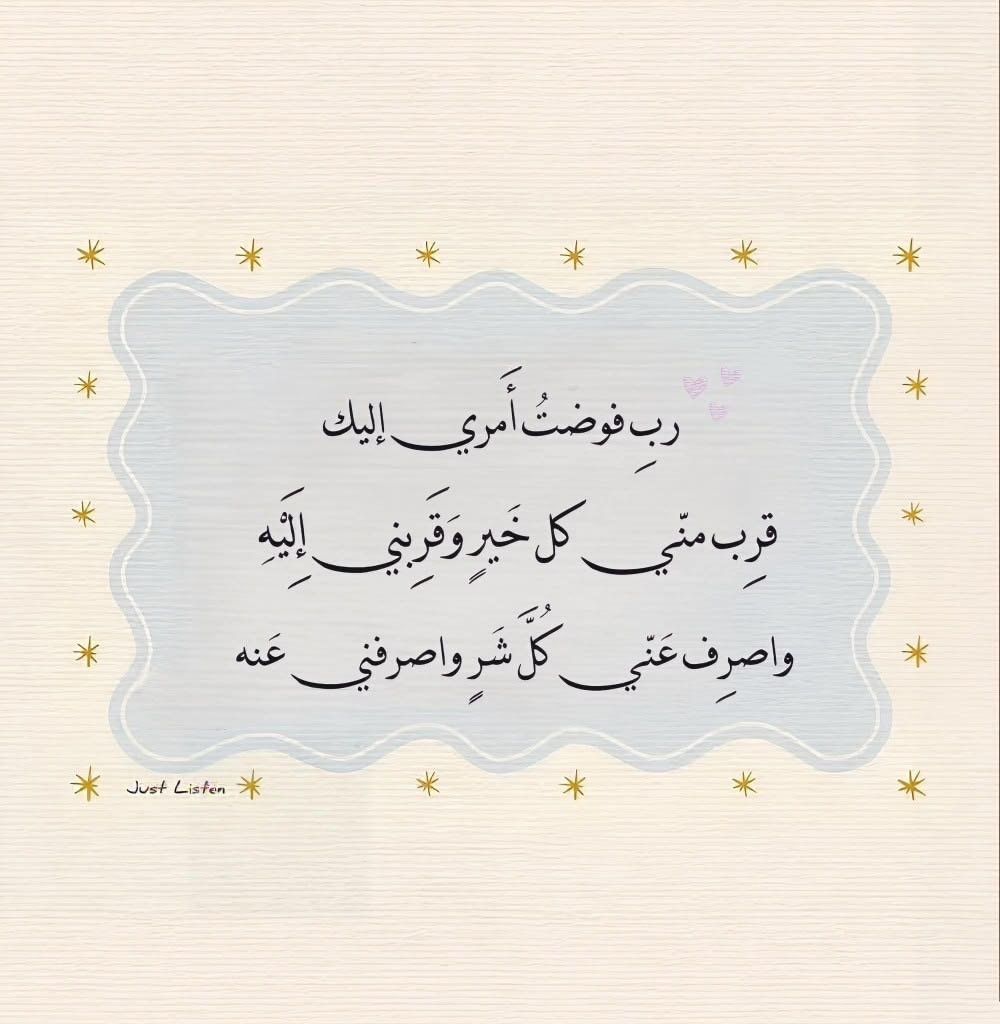 ربِ فوضتُ أَمري إليك
قرِب منّي كل خَيرٍ وَقَرِبني إِلَيْهِ
واصرِف عَنّي كُلَّ شَرٍ واصرفني عَنه
Just Listen